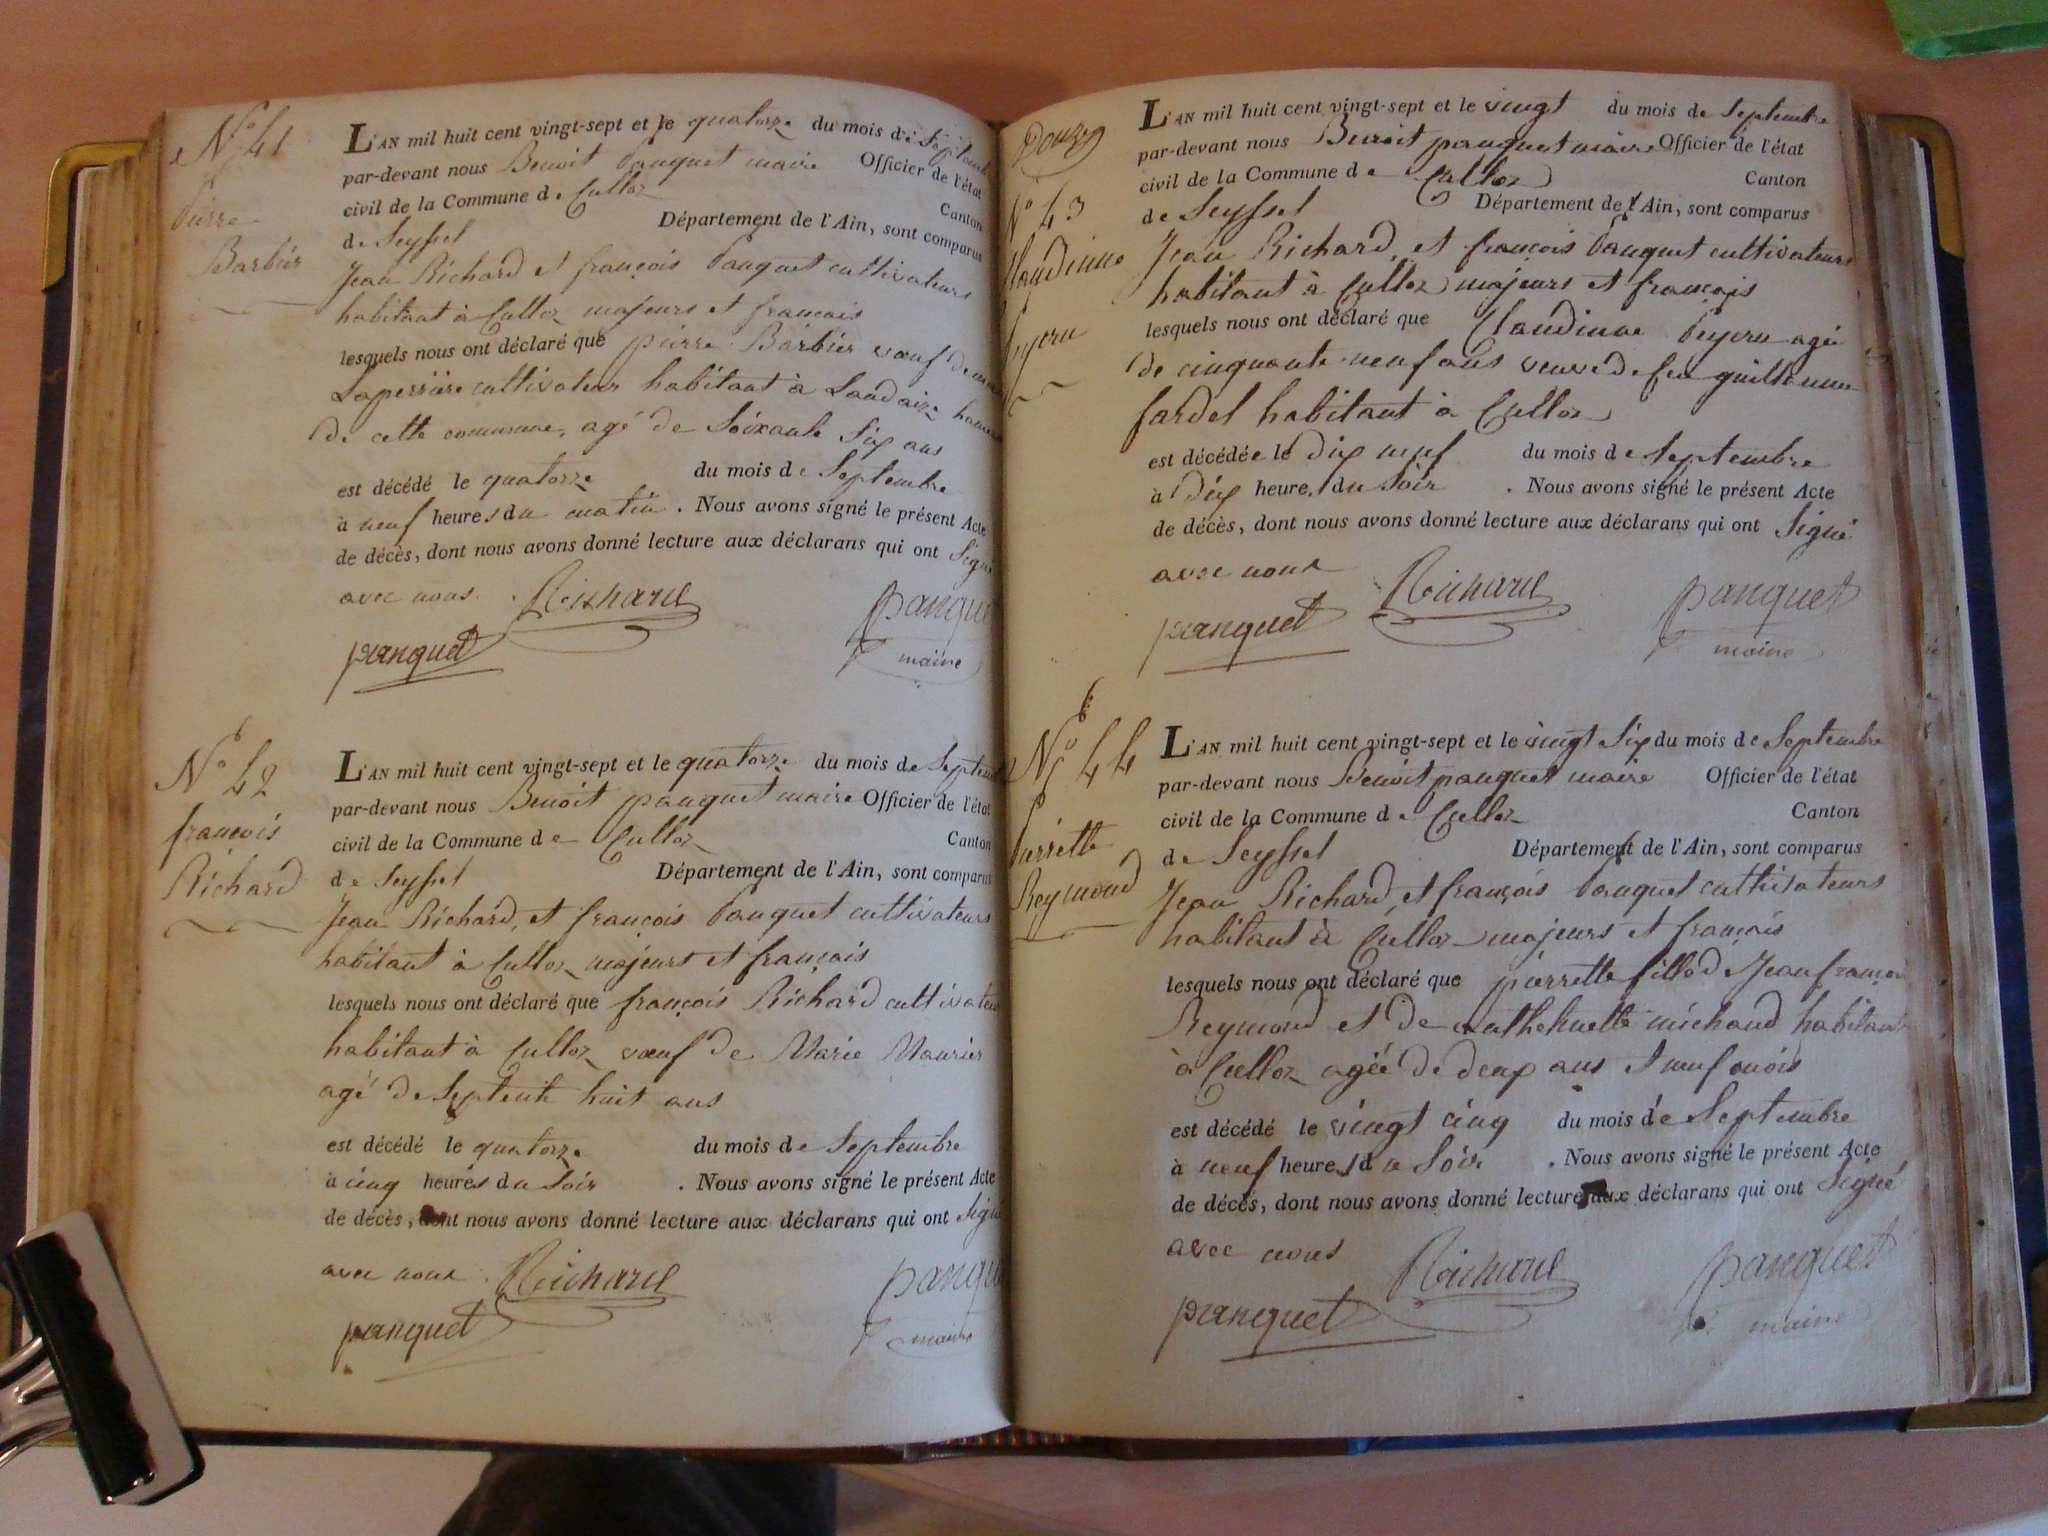 N° 41
Pierre
Barbier
L'AN mil huit cent vingt-sept et le quatorze du mois de Septembre
par-devant nous Benoit Pauquet maire Officier de l'état
civil de la Commune de Culloz Canton
de Seyssel Département de l'Ain, sont comparus
Jean Richard et françois Pauquet cultivateurs
habitant à Culloz majeurs et francais
lesquels nous ont déclaré que pierre Barbier vœuf de
Laperrière cultivateur habitant à Landaize
de cette commune, agé de Soixante Six ans
est décédé le quatorze du mois de Septembre
à neuf heures du matin . Nous avons signé le présent Acte
de décès, dont nous avons donné lecture aux déclarans qui ont Signé
avec nous. Richard Pauquet
pauquet maire
N° 42
françois
Richard
L'AN mil huit cent vingt-sept et le quatorze du mois de Septembre
par-devant nous Benoit pauquet maire Officier de l'état
civil de la Commune de Culloz Canton
de Seyssel Département de l'Ain, sont comparus
Jean Richard, et françois Pauquet cultivateurs
habitant à Culloz majeurs et français
lesquels nous ont déclaré que françois Richard cultivateur
habitant à Culloz vœuf de Marie Maurier
agé de Septente huit ans
est décédé le quatorze du mois de Septembre
à cinq heures du Soir . Nous avons signé le présent Acte
de décès, dont nous avons donné lecture aux déclarans qui ont Signé
avec nous. Richard Pauquet
pauquet maire
Douze
N° 43
Claudinne
Peyeru
L'AN mil huit cent vingt-sept et le vingt du mois de Septembre
par-devant nous Benoit pauquet maire Officier de l'état
civil de la Commune de Culloz Canton
de Seyssel Département de l'Ain, sont comparus
Jean Richard, et françois Pauquet cultivateurs
habitant à Culloz majeurs et français
lesquels nous ont déclaré que Claudinne Peyeru agé
de cinquante neuf ans veuve de feu guillaume
fardel habitant à Culloz
est décédée le dix neuf du mois de Septembre
à dix heures du Soir . Nous avons signé le présent Acte
de décès, dont nous avons donné lecture aux déclarans qui ont Signé
avec nous Richard Pauquet
pauquet maire
N° 44
Pierrette
Reymond
L'AN mil huit cent vingt-sept et le vingt Six du mois de Septembre
par-devant nous Benoit pauquet maire Officier de l'état
civil de la Commune de Culloz Canton
de Seyssel Département de l'Ain, sont comparus
Jean Richard, et françois Pauquet cultivateurs
habitant à Culloz majeurs et français
lesquels nous ont déclaré que pierrette fille de Jean francois
Reymond et de michaud habitant
à Culloz agée de deux ans et neuf mois
est décédé le vingt cinq du mois de Septembre
à neuf heures du Soir . Nous avons signé le présent Acte
de décès, dont nous avons donné lecture aux déclarans qui ont Signé
avec nous Richard Pauquet
pauquet maire